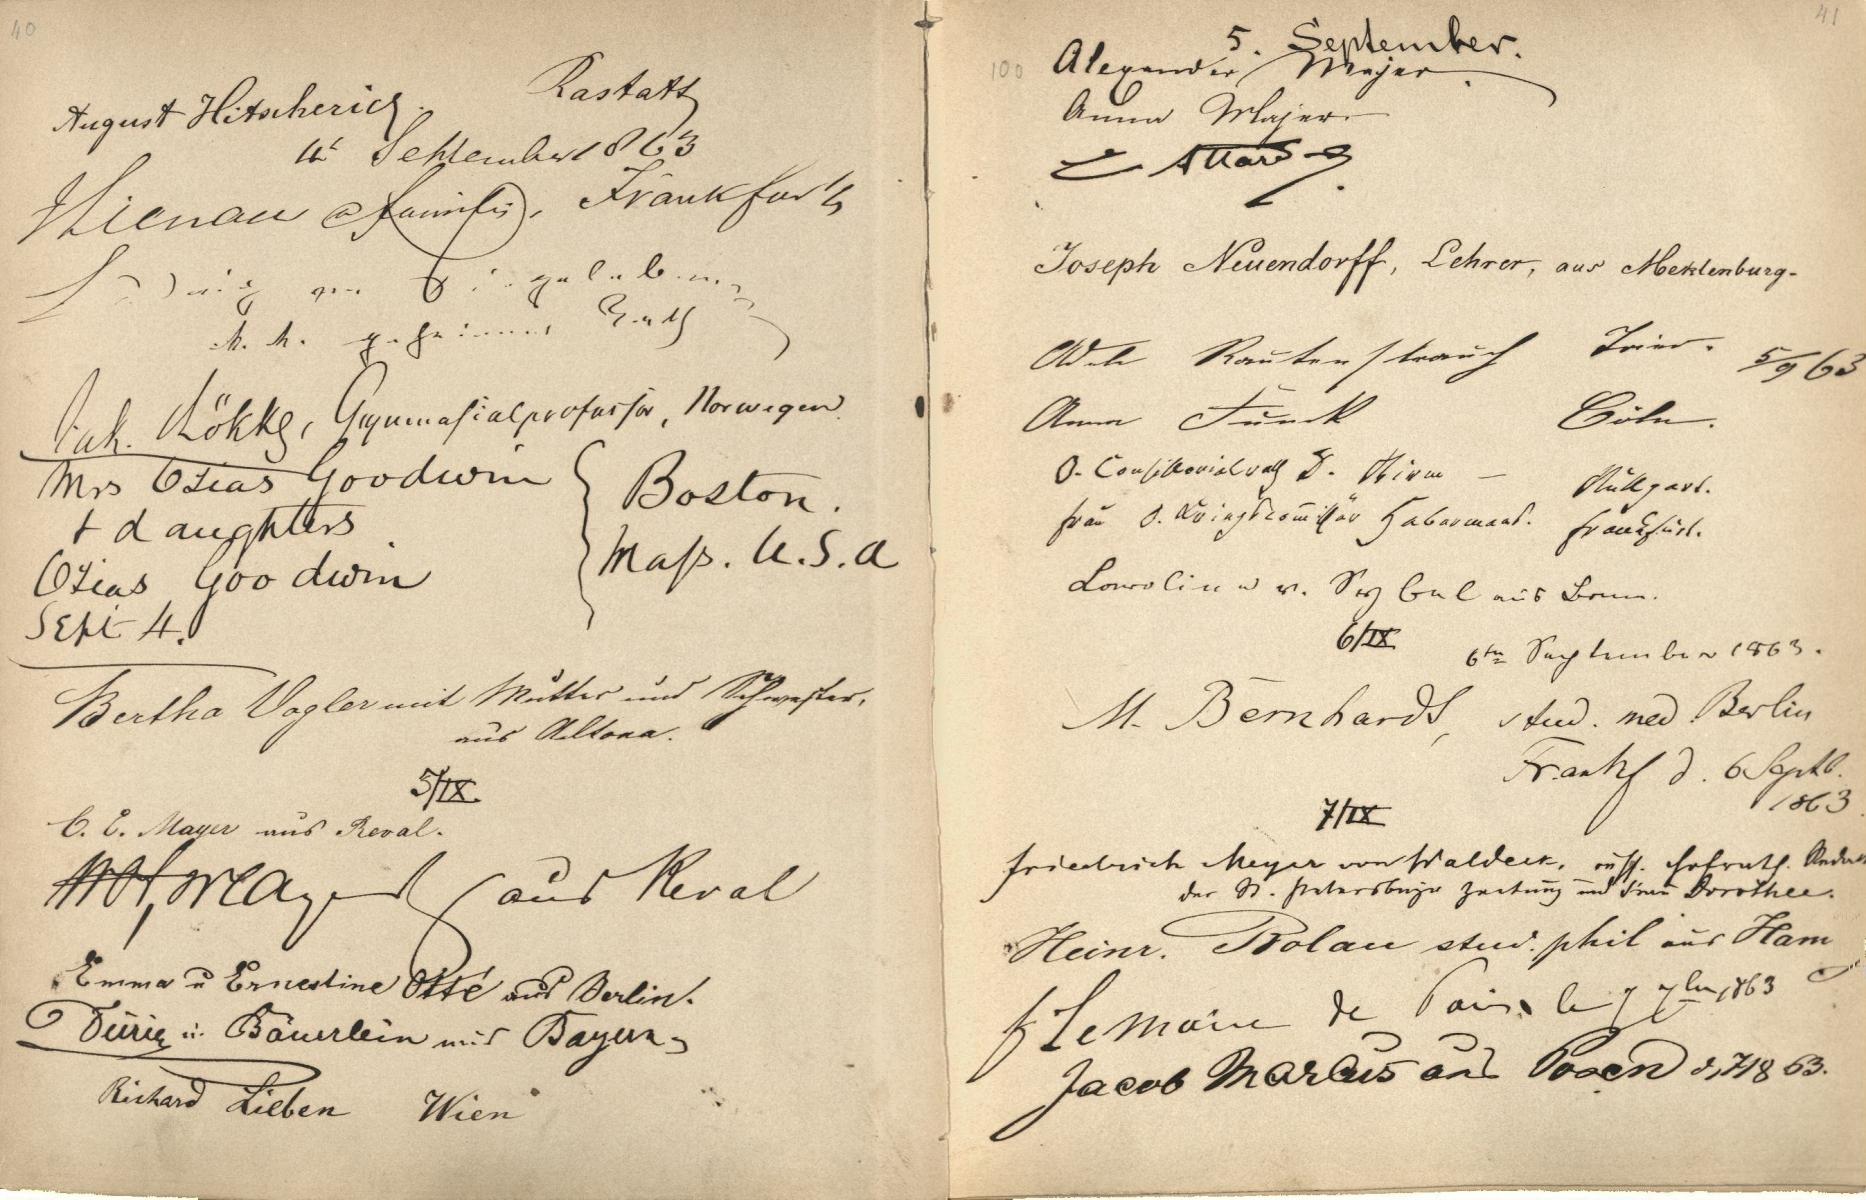 40
August Hitscherich Rastatt
4t September 1863
Wienau & Familie, Frankfurt
k. k. geheimer Rath
Jak. Lökke, Gymnasialprofessor, Norwegen.
Mrs Ozias Goodwin
+ daughters
Ozias Goodwin
Sept 4.
Boston.
Mass. U.S.A
Bertha Vogler mit Mutter und Schwester,
aus Altona.
5/IX
C. E. Mayer aus Reval.
Mayer aus Reval
Emma u Ernestine Otté aus Berlin.
Bäuerlein aus Bayern
Richard Lieben Wien
41
5. September.
100 Alexander Majer
Anna Majer
Joseph Neuendorff, Lehrer, aus Meklenburg-
Adele Rautenstrauch Trier. 5/9 63
Anna Funck Cöln.
O. Consistorialrath Stuttgart.
Frau O. Kriegscommissär Habermaas. Frankfurt.
v. Sybel aus Bonn.
6/IX
6ten September 1863.
M. Bernhardt, stud. med. Berlin
Frankf d. 6 Septb.
1863
7/IX
Friedrich Meyer von Waldeck, russ. Hofrath.
der St. Petersburger Zeitung und Frau Dorothee.
Heinr. Bolau stud. phil aus Ham
Lemoine de Paris le 7 7bre 1863
Jacob Marcus aus Posen d, 7/8 63.